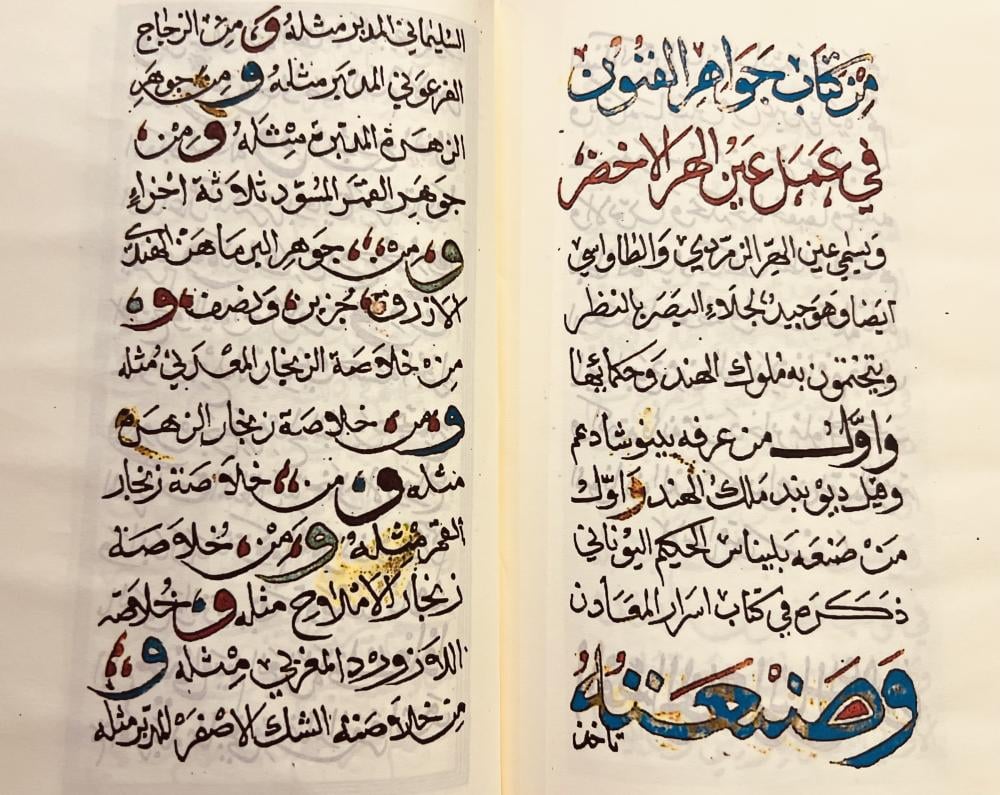 مِن كتاب جَوَاهِر الفنون
في عَمَل عَين الهر الاخضر
وَيسمى عين الهر الزمردي والطاوسي
ايضا وهو جيد لجلاء البصَر بالنظر
ويتختمون به ملوك الهند وحكمائها
وَاوّل من عرفه بينوشادعم
وقيل ديوبند ملك الهند واوّل
مَن صنعه بليناس الحكيم اليوناني
ذكَرَه في كتاب اسرار المعادن
وَصَنْعَتهُ
تاخذ
السليماني المدبر مثله وَمِن الزجاج
الفرعوني المدبَر مثله ومِن جوهَرِ
الزهَرة المدبَرة مِثله ومِن
جَوهَر القمَر المسَوّد ثلاوثة اجزاءٍ
ومن جوهر البرماهَن الهندي
الازرق جُزين ونصف و
مِن خلاوصَة الزنجار المعدَني مُثله
ومن خلاوصَة زنجار الزهَره
مثله ومن خلاوصَة زنجار
القمَر مثلهُ ومِن خُلاوصَة
زنجار الاملاوح مثله وخُلاوصَة
اللاوزورد المغربي مِثله و
مِن خلاوصَة الشك الاصْفر المدَبر مثله